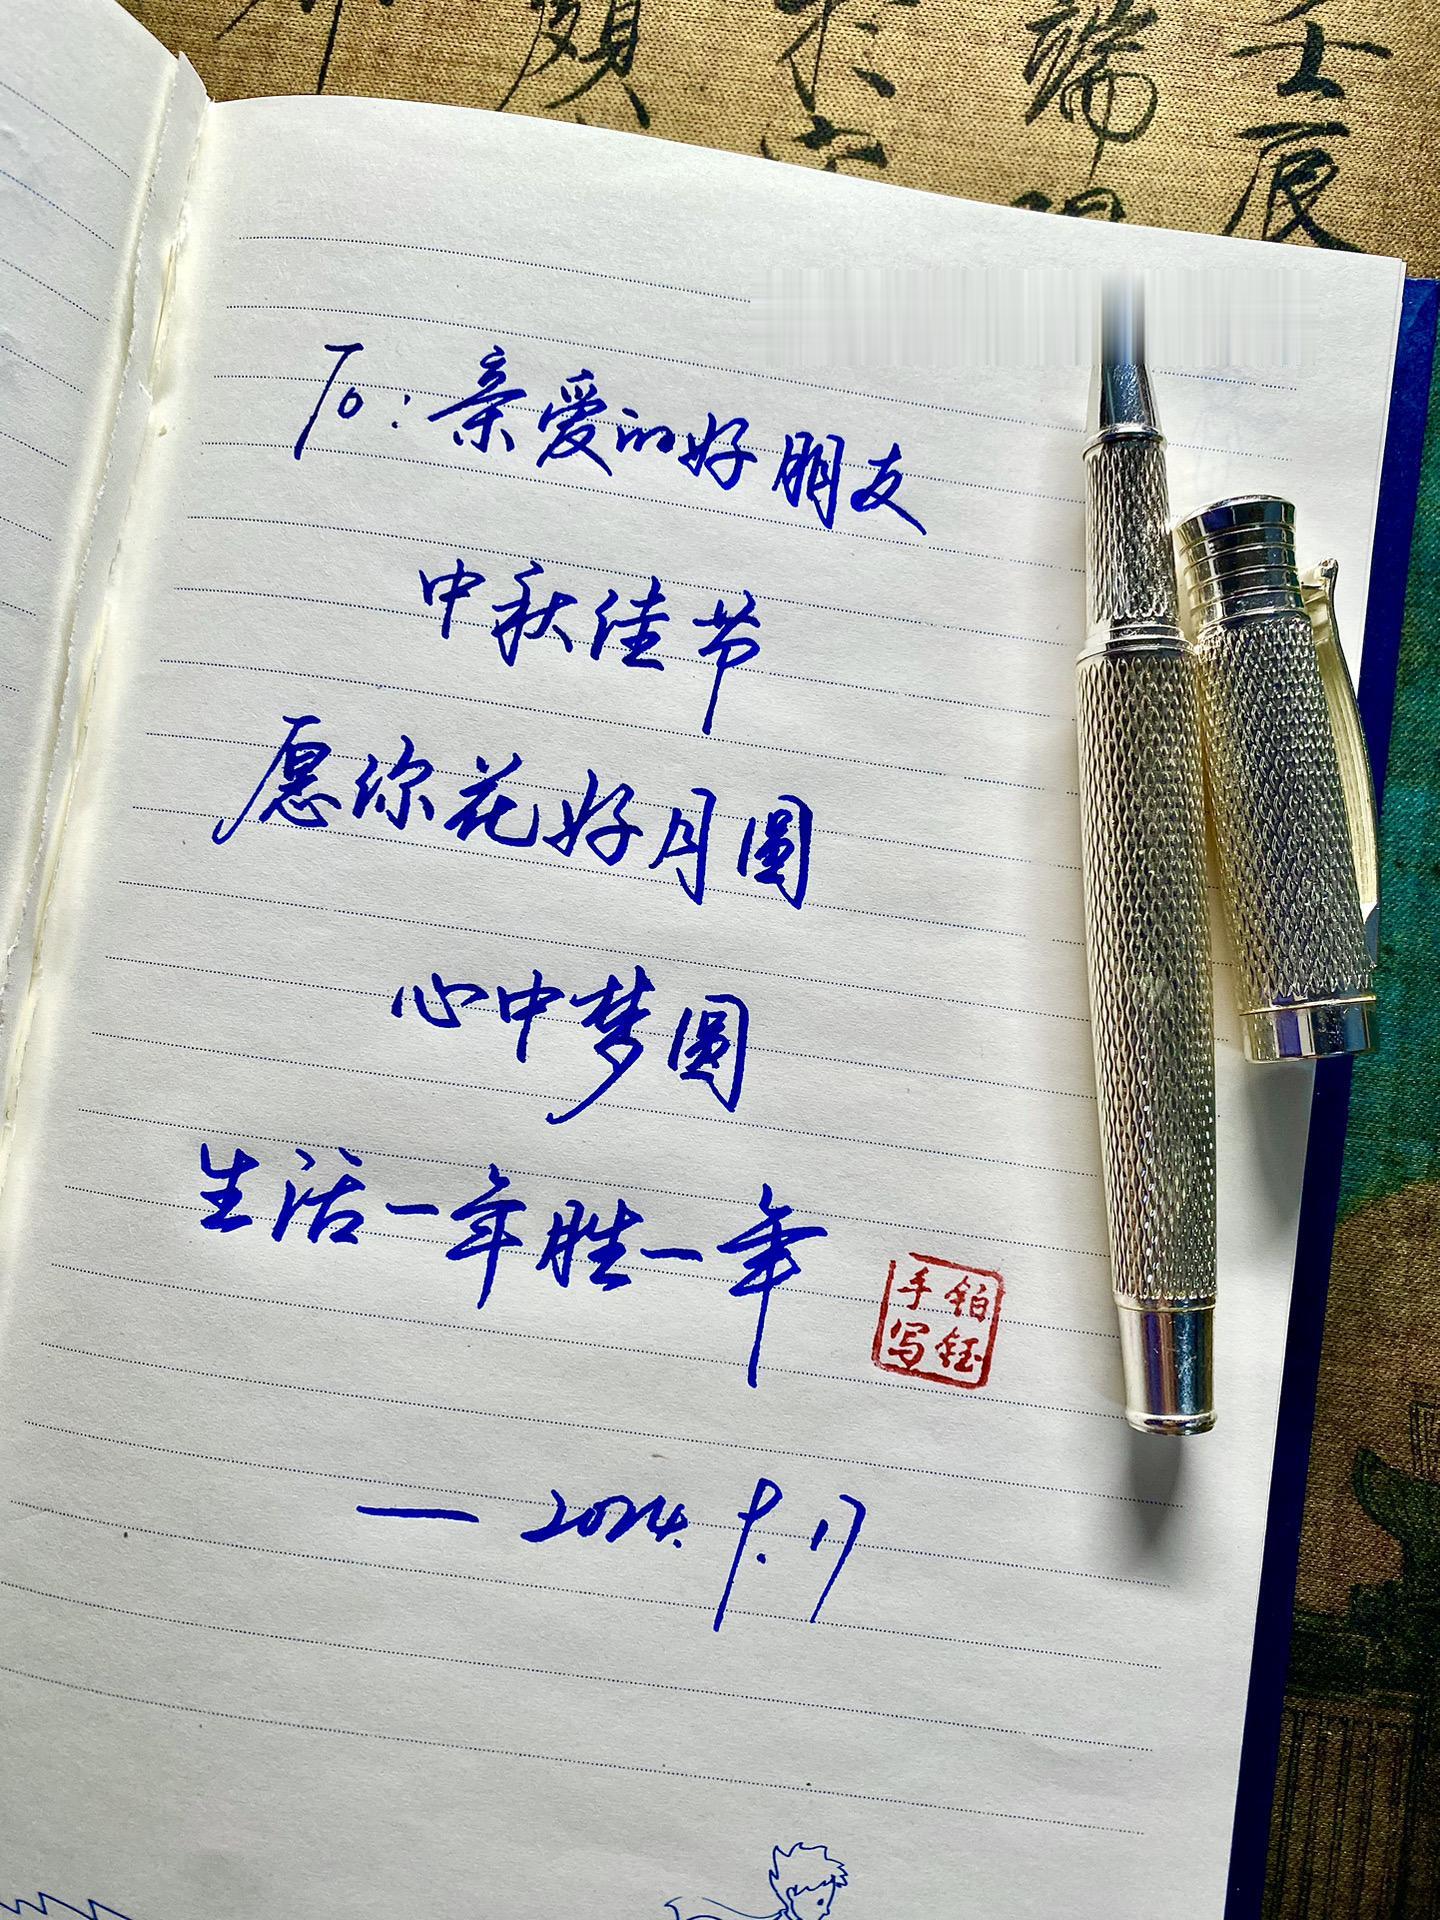 To：亲爱的好朋友
中秋佳节
愿你花好月圆
心中梦圆
生活一年胜一年
铂钰
手写
—2024.9.17
端